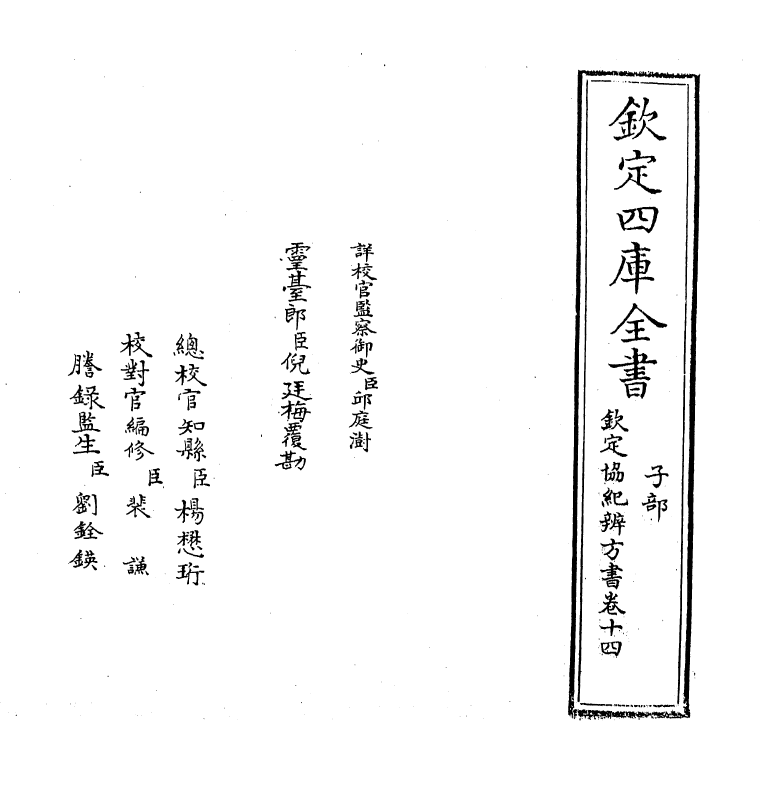 欽定四庫全書
子部
欽定協紀辨方書卷十四
詳校官監察御史臣邱庭澍
靈臺郎臣倪廷梅覆勘
總校官知縣臣楊懋珩
校對官編修臣裴謙
謄錄監生臣劉銓鍈